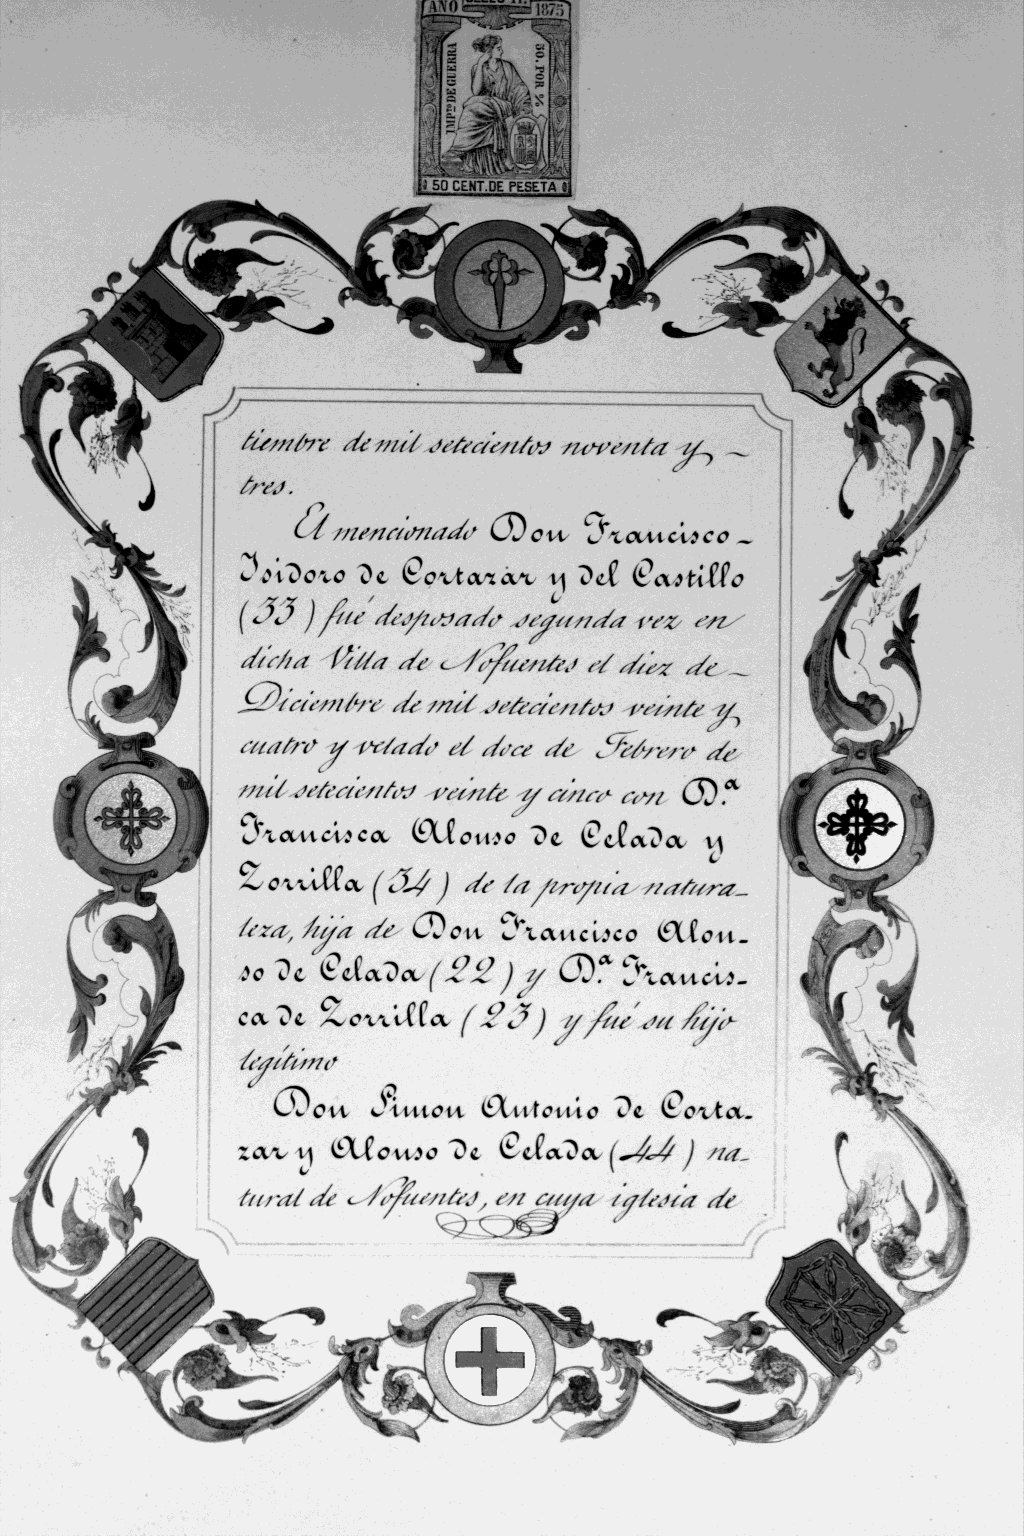 AÑO SELLO 11º 1875
IMPTO DE GUERRA
50. POR %
50 CENT. DE PESETA
tiembre de mil setecientos noventa y –
tres.
El mencionado Don Francisco –
Isidoro de Cortazar y del Castillo
(33) fué desposado segunda vez en
dicha Villa de Nofuentes el diez de –
Diciembre de mil setecientos veinte y
cuatro y velado el doce de Febrero de
mil setecientos veinte y cinco con D.ª
Francisca Alonso de Celada y
Zorrilla (34) de la propia natura-
leza, hija de Don Francisco Alon-
so de Celada (22) y D.ª Francis-
ca de Zorrilla (23) y fué su hijo
legítimo
Don Simon Antonio de Corta-
zar y Alonso de Celada (44) na-
tural de Nofuentes, en cuya iglesia de